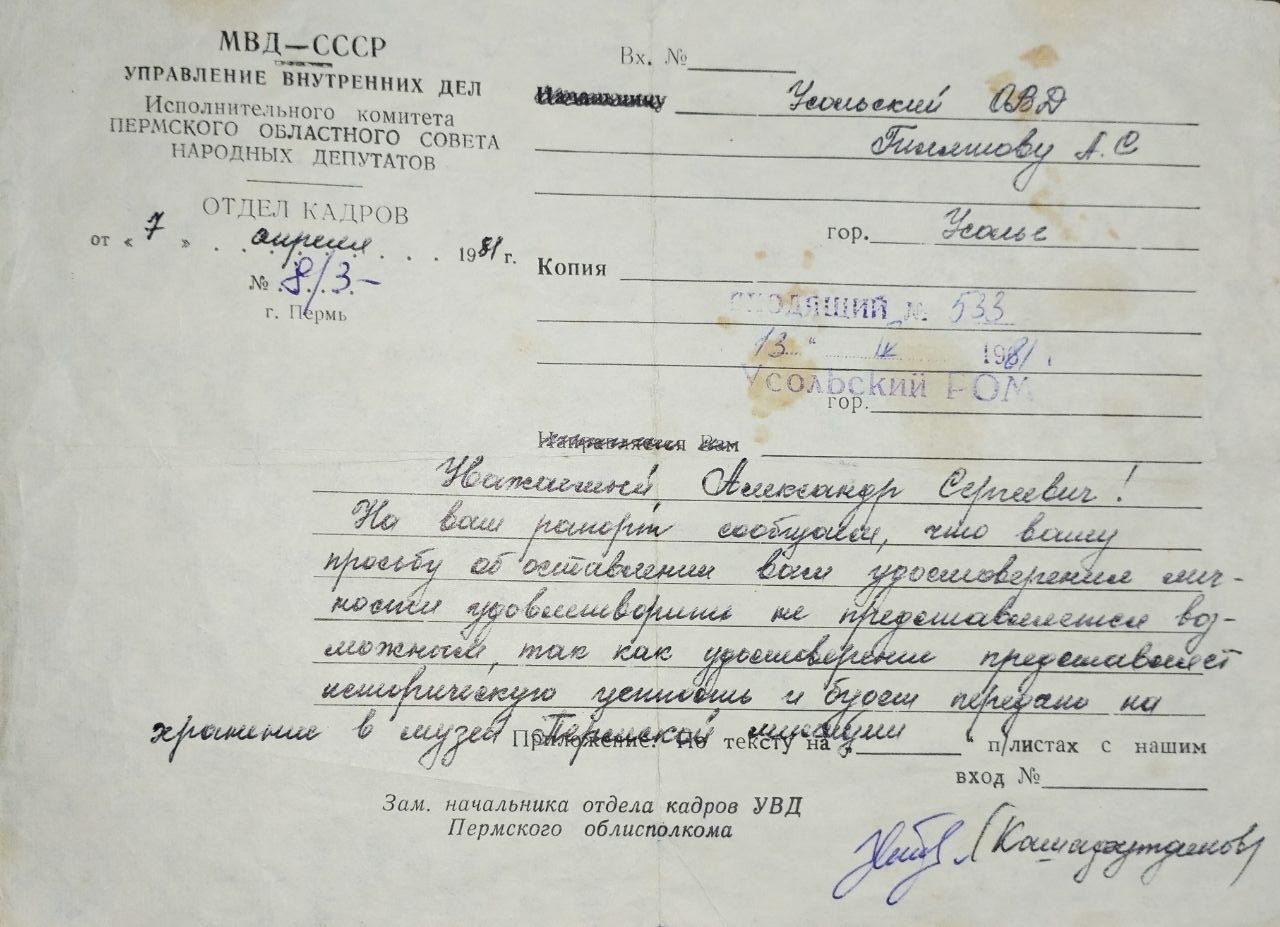 МВД—СССР
УПРАВЛЕНИЕ ВНУТРЕННИХ ДЕЛ
Исполнительного комитета
ПЕРМСКОГО ОБЛАСТНОГО СОВЕТА
НАРОДНЫХ ДЕПУТАТОВ
ОТДЕЛ КАДРОВ
от « 7 » апреля 1981 г.
№ 8/3-
г. Пермь
Вх. №
Начальнику Усольский ОВД
А. С
гор. Усолье
Копия
ВХОДЯЩИЙ № 533
13 " IV 1981 г.
Усольский РОМ
гор.
Направляется Вам
Уважаемый Александр Сергеевич!
На ваш рапорт сообщаем, что вашу
просьбу об оставлении вам удостоверения лич-
ности удовлетворить не представляется воз-
можным, так как удостоверение представляет
историческую ценность и будет передано на
хранение в музей Пермской милиции
Приложение: по тексту на „ " п/листах с нашим
вход №
Зам. начальника отдела кадров УВД
Пермского облисполкома